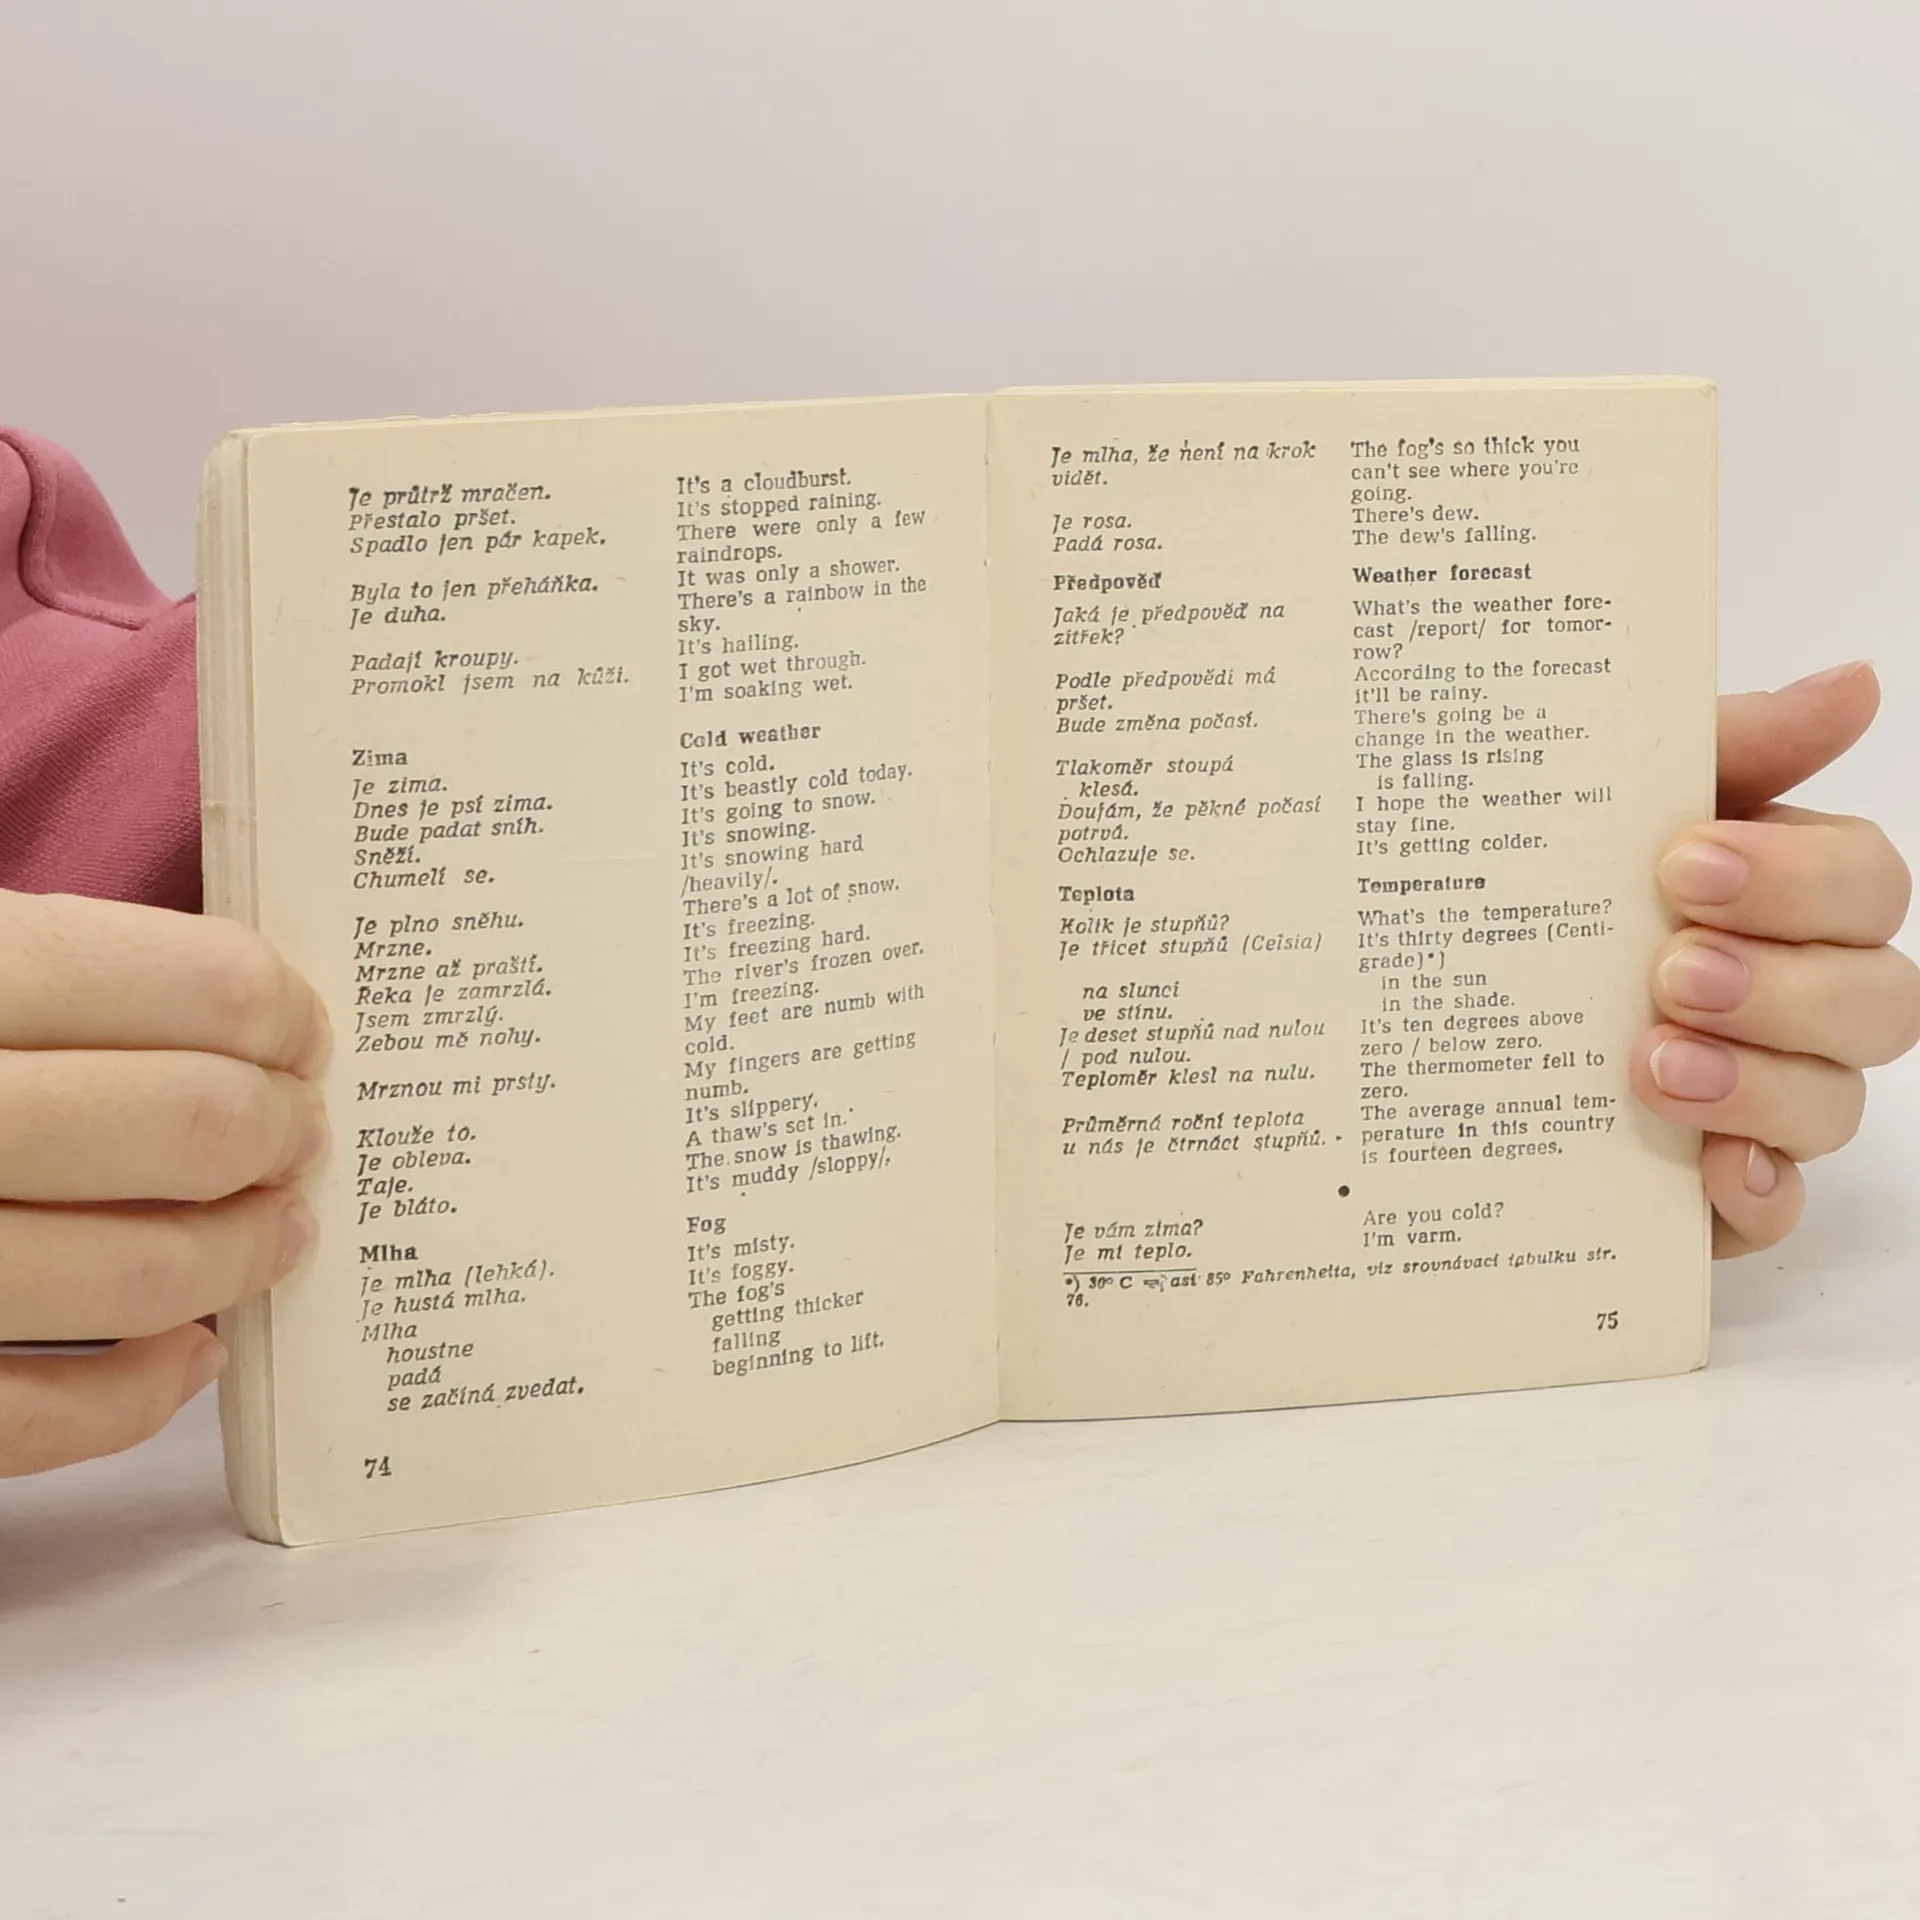 Je průtrž mračen.
Přestalo pršet.
Spadlo jen pár kapek.
Byla to jen přeháňka.
Je duha.
Padají kroupy.
Promokl jsem na kůži.
Zima
Je zima.
Dnes je psí zima.
Bude padat sníh.
Sněží.
Chumelí se.
Je plno sněhu.
Mrzne.
Mrzne až praští.
Řeka je zamrzlá.
Jsem zmrzlý.
Zebou mě nohy.
Mrznou mi prsty.
Klouže to.
Je obleva.
Taje.
Je bláto.
Mlha
Je mlha (lehká).
Je hustá mlha.
Mlha
houstne
padá
se začíná zvedat.
74
It's a cloudburst.
It's stopped raining.
There were only a few
raindrops.
It was only a shower.
There's a rainbow in the
sky.
It's hailing.
I got wet through.
I'm soaking wet.
Cold weather
It's cold.
It's beastly cold today.
It's going to snow.
It's snowing.
It's snowing hard
/heavily/.
There's a lot of snow.
It's freezing.
It's freezing hard.
The river's frozen over.
I'm freezing.
My feet are numb with
cold.
My fingers are getting
numb.
It's slippery.
A thaw's set in.
The snow is thawing.
It's muddy /sloppy/.
Fog
It's misty.
It's foggy.
The fog's
getting thicker
falling
beginning to lift.
Je mlha, že není na krok
vidět.
Je rosa.
Padá rosa.
Předpověď
Jaká je předpověď na
zítřek?
Podle předpovědi má
pršet.
Bude změna počasí.
Tlakoměr stoupá
klesá.
Doufám, že pěkné počasí
potrvá.
Ochlazuje se.
Teplota
Kolik je stupňů?
Je třicet stupňů (Celsia)
na slunci
ve stínu.
Je deset stupňů nad nulou
/ pod nulou.
Teploměr klesl na nulu.
Průměrná roční teplota
u nás je čtrnáct stupňů.
Je vám zima?
Je mi teplo.
The fog's so thick you
can't see where you're
going.
There's dew.
The dew's falling.
Weather forecast
What's the weather fore-
cast /report/ for tomor-
row?
According to the forecast
it'll be rainy.
There's going be a
change in the weather.
The glass is rising
is falling.
I hope the weather will
stay fine.
It's getting colder.
Temperature
What's the temperature?
It's thirty degrees (Centi-
grade)*)
in the sun
in the shade.
It's ten degrees above
zero / below zero.
The thermometer fell to
zero.
The average annual tem-
perature in this country
is fourteen degrees.
Are you cold?
I'm warm.
*) 30° C = asi 85° Fahrenheita, viz srovnávací tabulku str.
76.
75